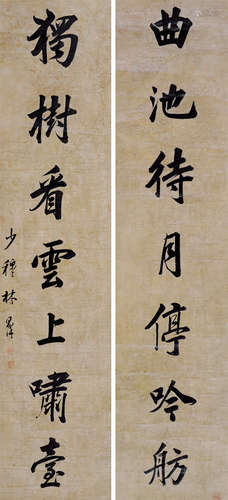 曲池待月停吟舫
獨樹看雲上嘯臺
少穆林則徐